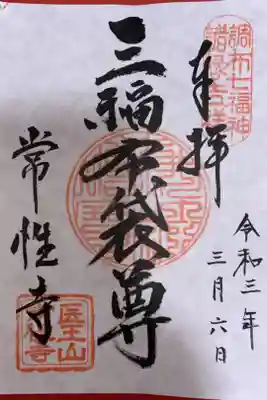 調布七福神
諸縁吉祥
奉拝
令和三年
三月六日
三福布袋尊
常性寺
医王山